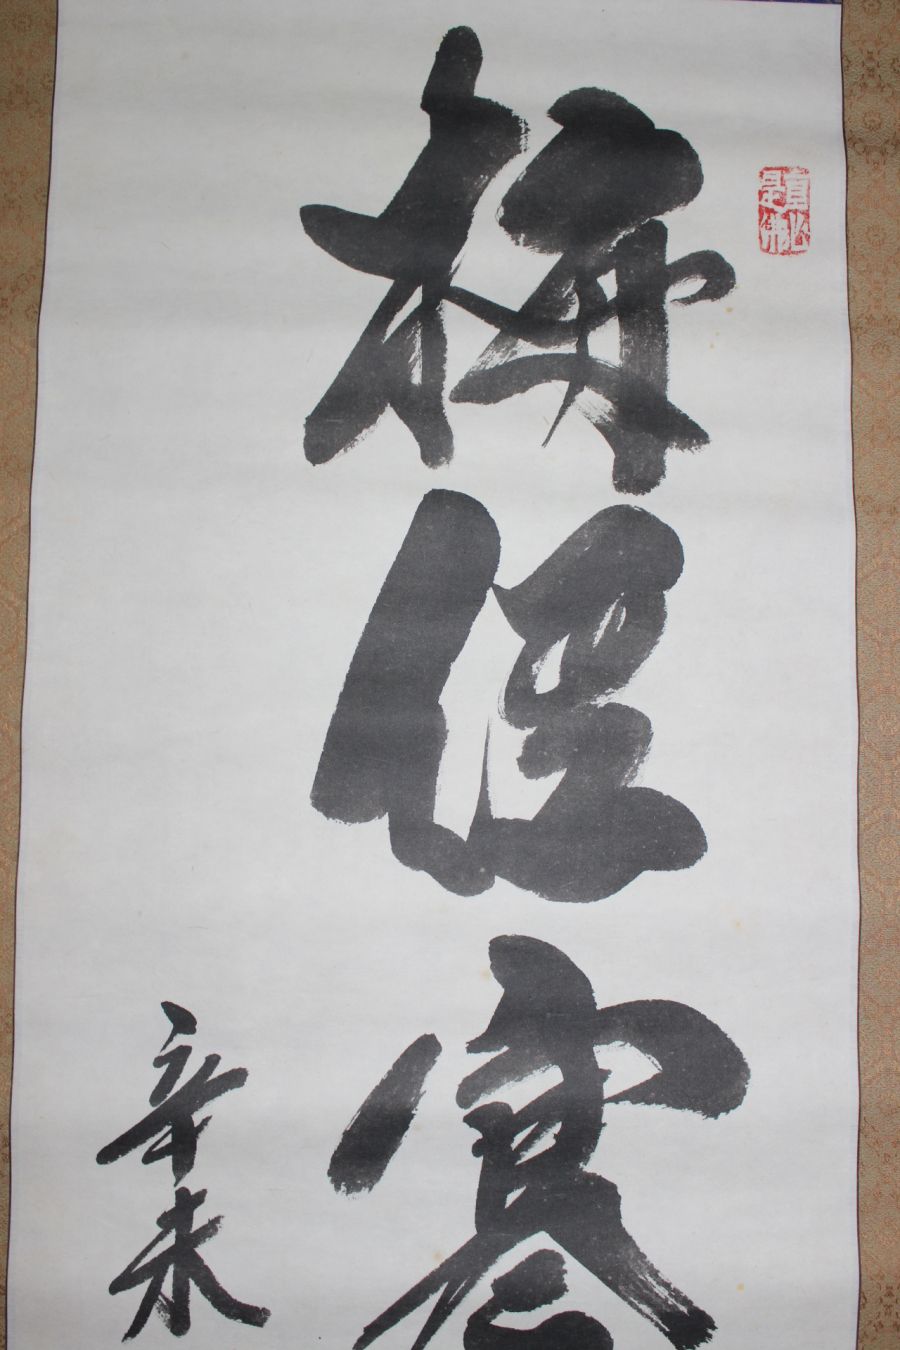 直心是佛
梅促寒
辛未